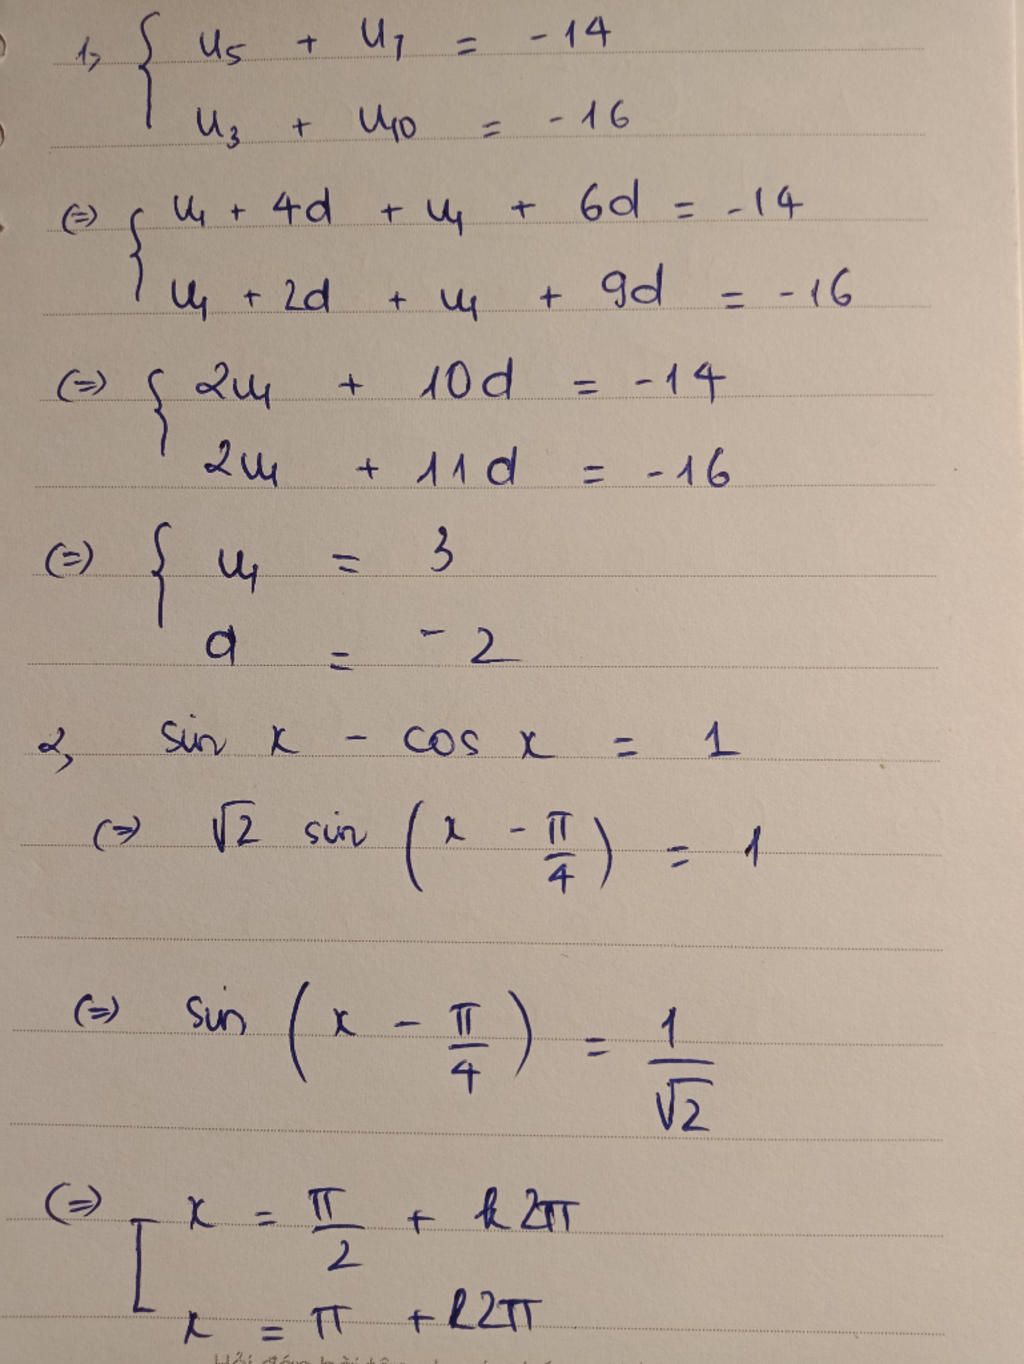 1, { u₅ + u₇ = -14
u₃ + u₁₀ = -16
(=) { u₁ + 4d + u₁ + 6d = -14
u₁ + 2d + u₁ + 9d = -16
(=) { 2u₁ + 10d = -14
2u₁ + 11d = -16
(=) { u₁ = 3
d = -2
2, sin x - cos x = 1
(=) √2 sin (x - π/4) = 1
(=) sin (x - π/4) = 1/√2
(=) [ x = π/2 + k2π
x = π + k2π